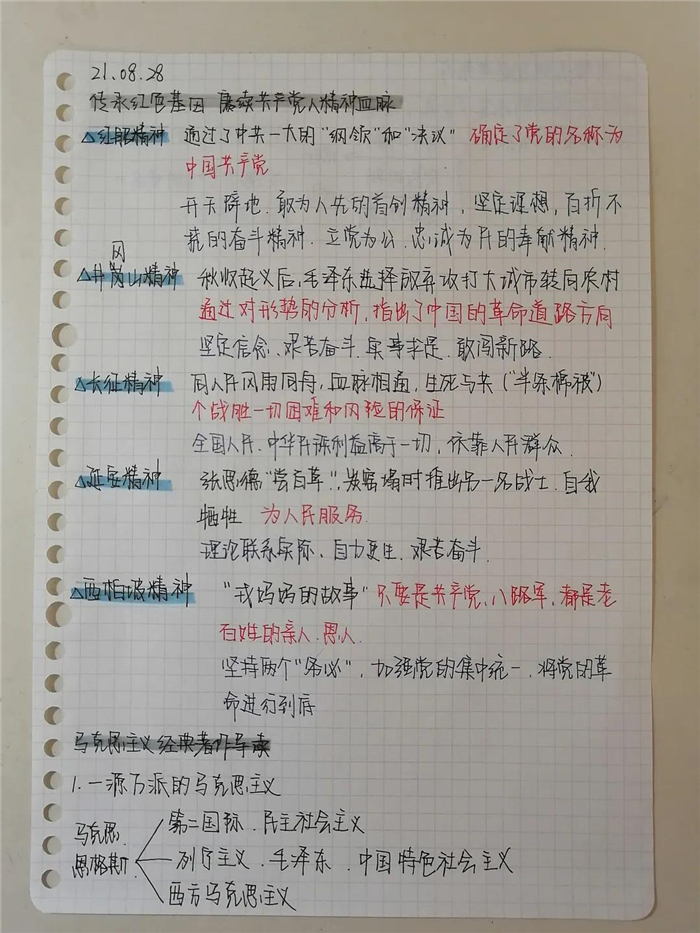 21.08.28
传承红色基因 赓续共产党人精神血脉
△红船精神 通过了中共一大的"纲领"和"决议" 确定了党的名称为
中国共产党
开天辟地、敢为人先的首创精神，坚定理想，百折不
挠的奋斗精神、立党为公、忠诚为民的奉献精神.
冈
△井岗山精神 秋收起义后，毛泽东选择放弃攻打大城市转向农村
通过对形势的分析，指出了中国的革命道路方向
坚定信念、艰苦奋斗、实事求是、敢闯新路.
△长征精神 同人民风雨同舟，血脉相通，生死与共("半条棉被")
个战胜一切困难和风险的保证
全国人民、中华民族利益高于一切，依靠人民群众.
△延安精神 张思德"尝百草"，炭窑塌时推出另一名战士，自我
牺牲 为人民服务.
理论联系实际、自力更生、艰苦奋斗.
△西柏坡精神 "戎妈妈的故事" 只要是共产党、八路军，都是老
百姓的亲人、恩人.
坚持两个"务必"，加强党的集中统一，将党的革
命进行到底
马克思主义经典著作导读
1. 一源万派的马克思主义
马克思、
恩格斯
第二国际、民主社会主义
列宁主义、毛泽东、中国特色社会主义
西方马克思主义